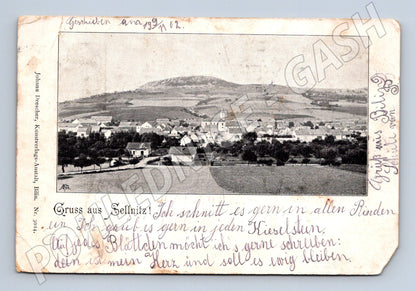 Geschrieben am 19/11 02.
Gruss aus Sellnitz! Ich schnitt es gern in allen Rinden
ein, Ich grub es gern in jeden Kieselstein,
Auf das Blättchen möcht ich's gerne schreiben:
dein ist mein Herz und soll es ewig bleiben.
Gruß aus Bilin
Johann Drescher, Kunstverlags-Anstalt, Bilin. Nr. 3024.
POHLEDNICE-GASH